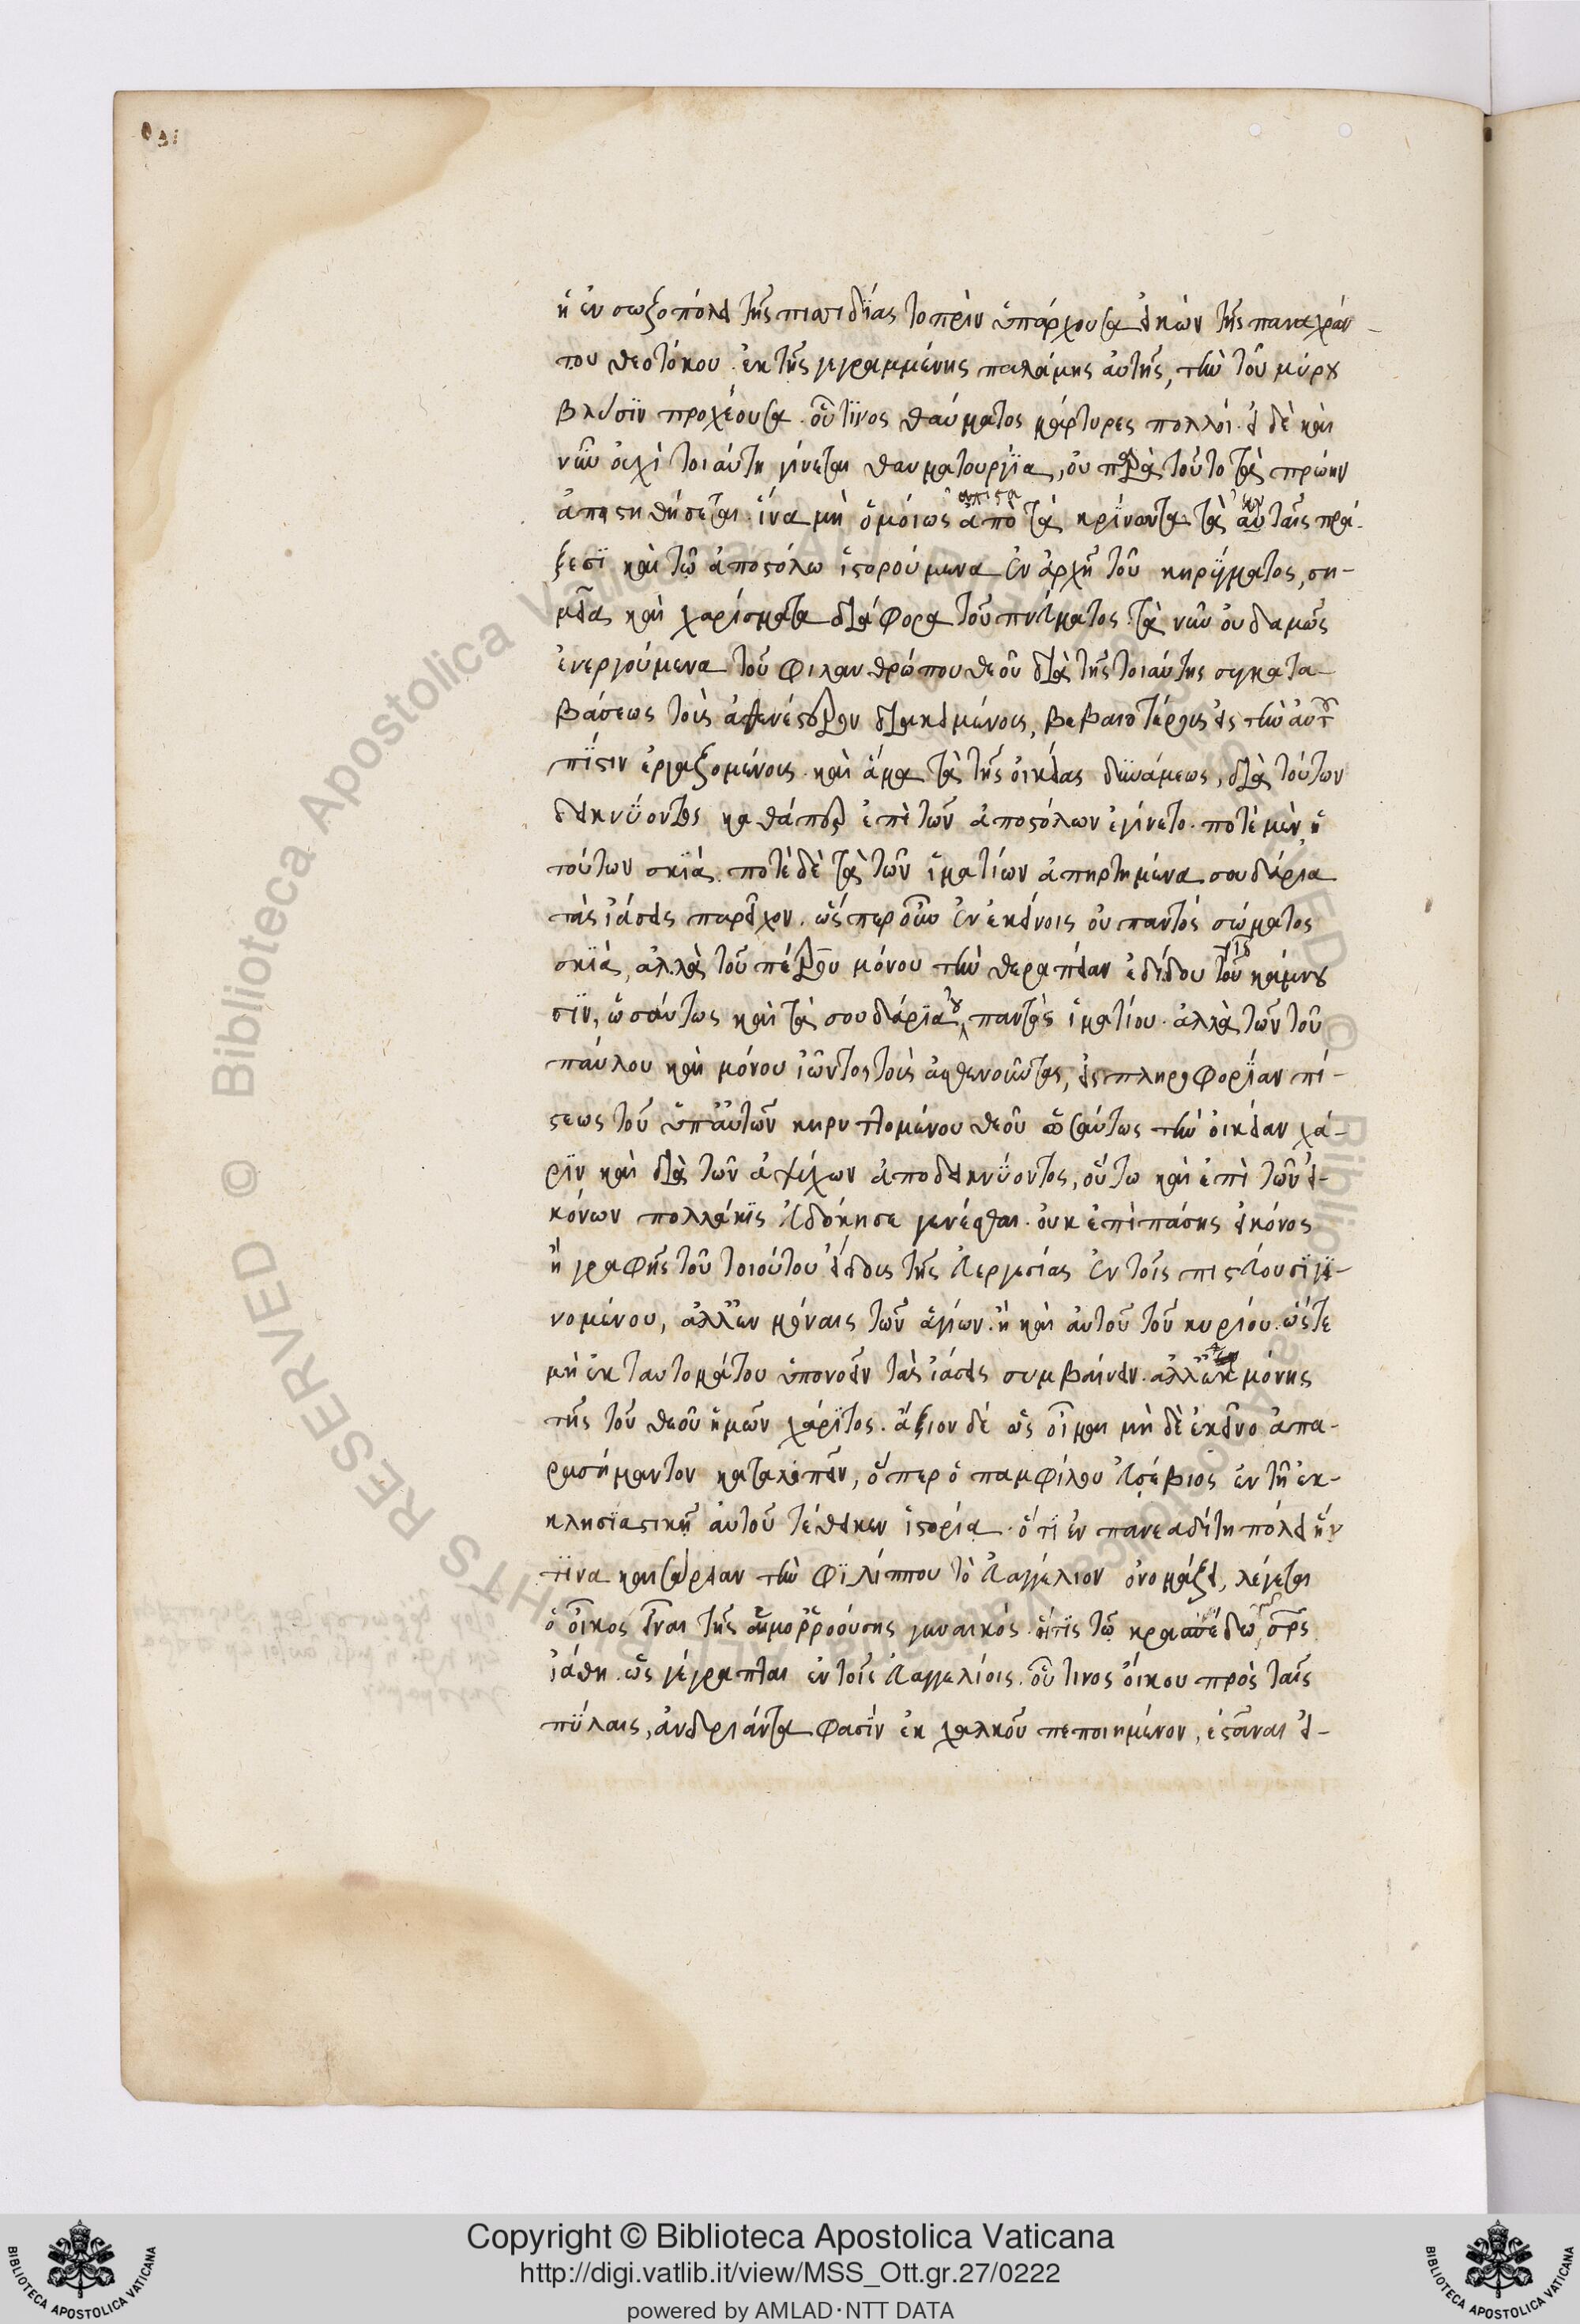 ἡ ἐν σωζοπόλει τῆς πισιδΐας τοπρὶν ὑπάρχουσα εἰκὼν τῆς παναχράν-
του θεοτόκου. ἐκ τῆς γεγραμμένης παλάμης αὐτῆς, τὴν τοῦ μύρου
βλύσϊν προχέουσα. οὗ τϊνος θαύματος μάρτυρες πολλοί. εἰ δὲ καὶ
νῦν οὐχὶ τοιαύτη γίνεται θαυματουργΐα, οὐ παρὰ τοῦτο τὰ πρώην
ἀπιστηθήσεται. ἵνα μὴ ὁμοίως ἄπιστα κρΐνωνται τὰ ἐν ταῖς πρά-
ξεσϊ καὶ τῶ ἀποστόλω ἱστορούμενα ἐν ἀρχῇ τοῦ κηρΰγματος, ση-
μεῖα καὶ χαρίσματα διάφορα τοῦ πνεύματος. τὰ νῦν οὐδαμῶς
ἐνεργούμενα τοῦ φιλανθρώπου θεοῦ διὰ τῆς τοιαύτης συγκατα-
βάσεως τοὺς ἀσθενέστερον διακειμένους, βεβαιοτέρους εἰς τὴν αὐτοῦ
πΐστιν ἐργαζομένους. καὶ ἅμα τὰ τῆς οἰκείας δυνάμεως, διὰ τούτων
δεικνΰοντος καθάπερ ἐπὶ τῶν ἀποστόλων ἐγίνετο. ποτὲ μὲν ἡ
τούτων σκϊά. ποτὲ δὲ τὰ τῶν ἱματίων ἀπηρτημένα σουδάρια
τὰς ἰάσεις παρεῖχον. ὥσπερ οὖν ἐν ἐκείνοις οὐ παντὸς σώματος
σκϊὰ, ἀλλὰ τοῦ πέτρου μόνου τὴν θεραπείαν ἐδίδου τοῖς κάμνου
σϊν, ὡσαύτως καὶ τὰ σουδάρϊα, οὐ παντὸς ἱματίου. ἀλλὰ τῶν τοῦ
παύλου καὶ μόνου ἰῶντο τοὺς ἀσθενοῦντας, εἰς πληροφορΐαν πί-
στεως τοῦ ὑπ' αὐτῶν κηρυττομένου θεοῦ ὡσαύτως τὴν οἰκείαν χά-
ρϊν καὶ διὰ τῶν ἀψύχων ἀποδεικνΰοντος, οὕτω καὶ ἐπὶ τῶν εἰ-
κόνων πολλάκϊς εὐδόκησε γενέσθαι. οὐκ ἐπὶ πάσης εἰκόνος
ἢ γραφῆς τοῦ τοιούτου εἴδους τῆς εὐεργεσίας ἐν τοῖς πιστεύουσϊ γϊ-
νομένου, ἀλλ' ἐν μόναις τῶν ἁγίων. ἢ καὶ αὐτοῦ τοῦ κυρίου. ὥστε
μὴ ἐκ ταυτομάτου ὑπονοεῖν τὰς ἰάσεις συμβαίνειν. ἀλλ' ἐκ μόνης
τῆς τοῦ θεοῦ ἡμῶν χάρϊτος. ἄξιον δέ ὡς οἶμαι μὴ δὲ ἐκεῖνο ἀπα-
ρασήμαντον καταλιπεῖν, ὅπερ ὁ παμφίλου εὐσέβιος ἐν τῇ ἐκ-
κλησϊαστικῇ αὐτοῦ τέθεικεν ἱστορία. ὅτϊ ἐν πανεαδίτη πόλει ἥν
τϊνα καισάρειαν τὴν φϊλίππου τὸ εὐαγγέλιον ὀνομάζει, λέγεται
ὁ οἶκος εἶναι τῆς αἱμορροούσης γυναικός. ἥτϊς τῶ κρασπέδω τοῦ σωτῆρος
ἰάθη. ὡς γέγραπται ἐν τοῖς εὐαγγελίοις. οὗ τινος οἴκου πρὸς ταῖς
πΰλαις, ἀνδριάντα φασϊν ἐκ χαλκοῦ πεποιημένον, ἑστάναι εἰ-
Copyright © Biblioteca Apostolica Vaticana
http://digi.vatlib.it/view/MSS_Ott.gr.27/0222
powered by AMLAD·NTT DATA